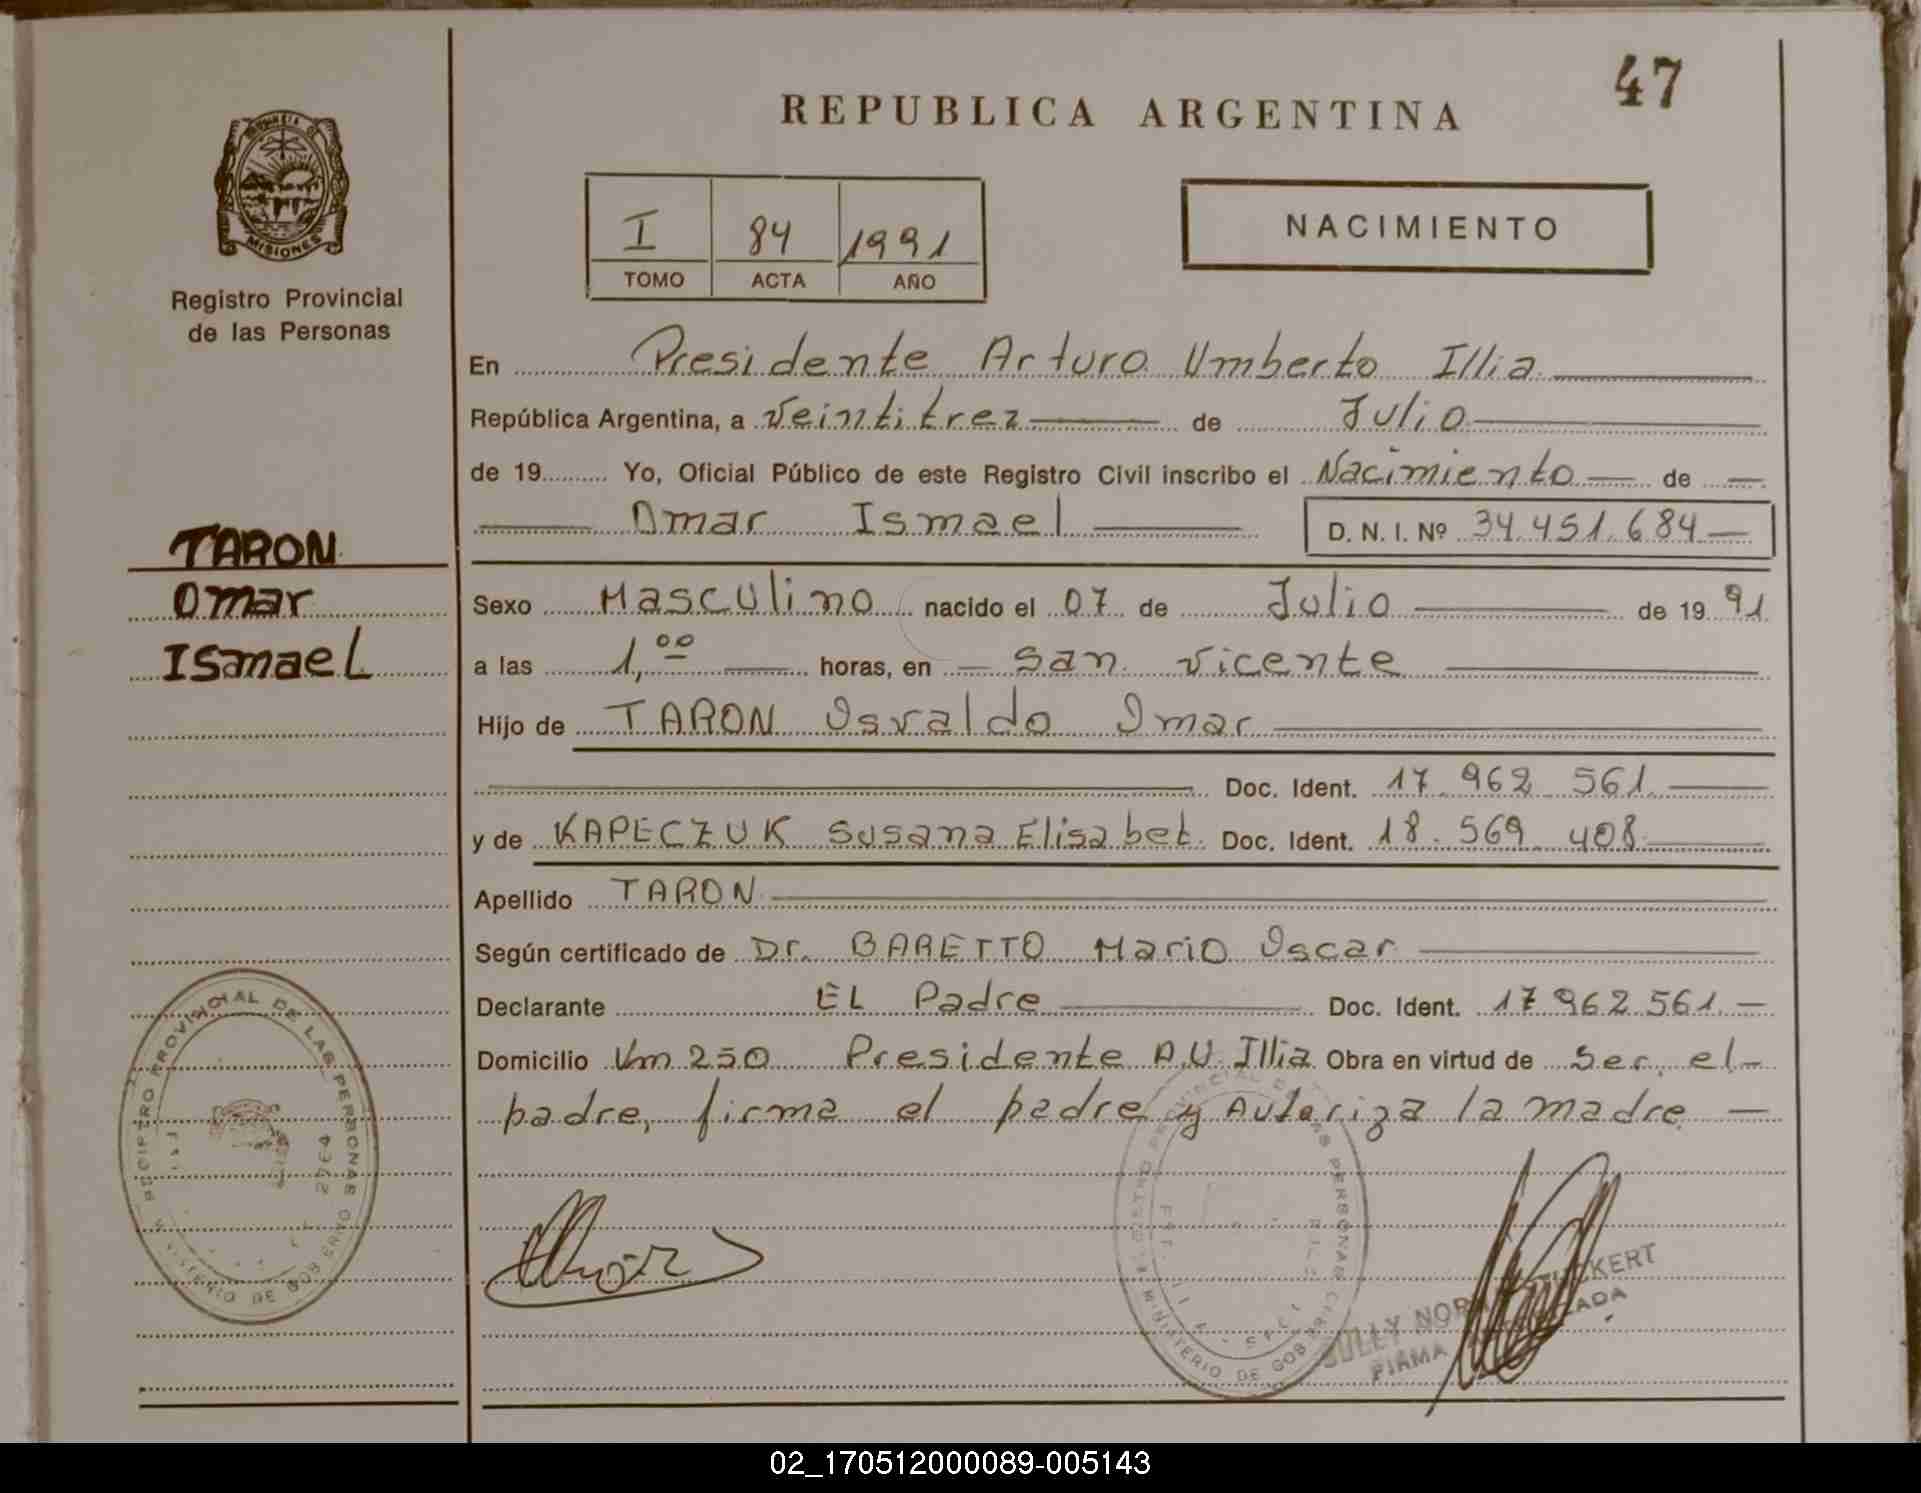 47
REPUBLICA ARGENTINA
MISIONES
Registro Provincial
de las Personas
I 84 1991
TOMO ACTA AÑO
NACIMIENTO
En Presidente Arturo Umberto Illia
República Argentina, a veintitrez de Julio
de 19 Yo, Oficial Público de este Registro Civil inscribo el Nacimiento de
Omar Ismael D. N. I. Nº 34.451.684
TARON
Omar
Ismael
Sexo Masculino nacido el 07 de Julio de 19 91
a las 1,00 horas, en San Vicente
Hijo de TARON Osvaldo Omar
Doc. Ident. 17.962.561
y de KAPECZUK Susana Elisabet Doc. Ident. 18.569.408
Apellido TARON
Según certificado de Dr. BARETTO Mario Oscar
Declarante EL Padre Doc. Ident. 17.962.561
Domicilio Km 250 Presidente A.U. Illia Obra en virtud de ser el
padre, firma el padre y Autoriza la madre
PROVINCIAL DE LAS PERSONAS
MINISTERIO DE GOBIERNO
PERSONAS
MINISTERIO DE GOB
FIRMA
02_170512000089-005143